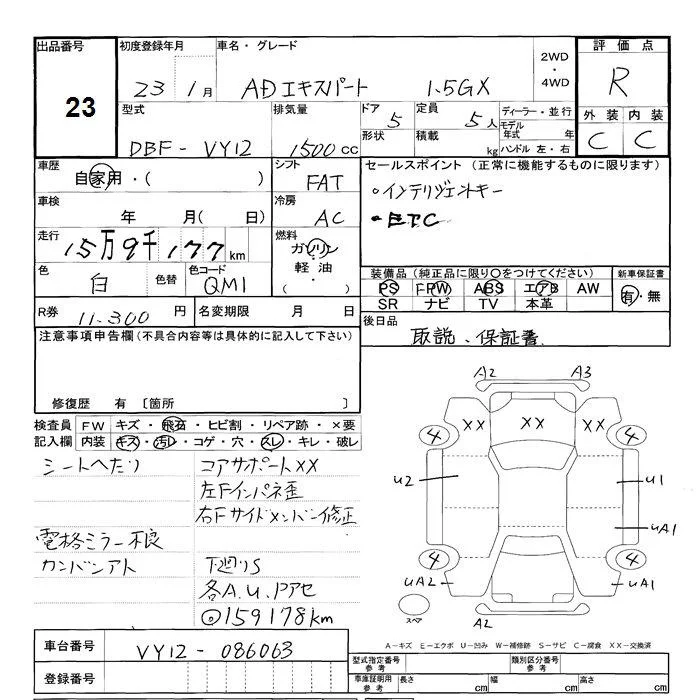 出品番号 初度登録年月 車名・グレード 2WD・4WD 評価点
23 23 1月 ADエキスパート 1.5GX R
型式 排気量 ドア 5 定員 5人 ディーラー・並行 外装 内装
モデル年式 年
DBF-VY12 1500cc 形状 積載 kg ハンドル 左・右 C C
車歴 シフト セールスポイント (正常に機能するものに限ります)
自家用・( ) FAT ・インテリジェントキー
車検 冷房 ・ETC
年 月( 日) AC
走行 15万9千177km 燃料 ガソリン
軽油・
( )
色 白 色替 色コード QM1
装備品 (純正品に限り○をつけてください) 新車保証書
PS FPW ABS エアB AW 有・無
SR ナビ TV 本革
R券 11,300 円 名変期限 月 日 後日品
取説、保証書
注意事項申告欄 (不具合内容等は具体的に記入して下さい)
修復歴 有 〔箇所 〕
検査員 FW キズ・飛石・ヒビ割・リペア跡・×要
記入欄 内装 キズ・汚レ・コゲ・穴・スレ・キレ・破レ
シートヘタリ コアサポートXX
左Fインパネ歪
右Fサイドメンバー修正
電格ミラー不良
カンバンアト 下廻りS
各A.U.Pアセ
◎159178km
A2 A3
XX XX
4 4
U2 U1
UA1
4 4
UA2 UA1
スペア A2
A-キズ E-エクボ U-凹み W-補修跡 S-サビ C-腐食 XX-交換済
車台番号 VY12-086063
登録番号
型式指定番号 参考 類別区分番号 参考
車庫証明用 参考 長さ cm 幅 cm 高さ cm